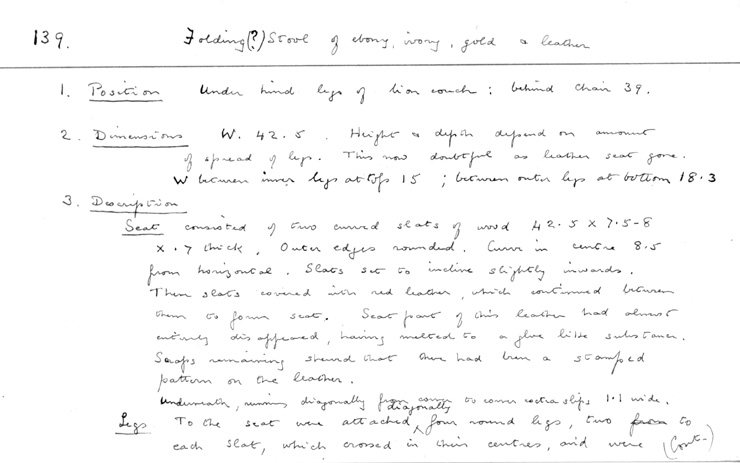 139. Folding(?) Stool of ebony, ivory, gold & leather
1. Position Under hind legs of lion couch: behind chair 39.
2. Dimensions W. 42.5. Height & depth depend on amount
of spread of legs. This now doubtful as leather seat gone.
W between inner legs at tops 15; between outer legs at bottom 18.3
3. Description
Seat consisted of two curved slats of wood 42.5 x 7.5-8
x .7 thick. Outer edges rounded. Curve in centre 8.5
from horizontal. Slats set to incline slightly inwards.
These slats covered with red leather, which continued between
them to form seat. Seat part of this leather had almost
entirely disappeared, having melted to a glue like substance.
Scraps remaining showed that there had been a stamped
pattern on the leather.
Underneath, running diagonally from corner to corner extra slips 1.1 wide.
Legs To the seat were attached diagonally four round legs, two to
each slat, which crossed in their centres, and were (Cont-)